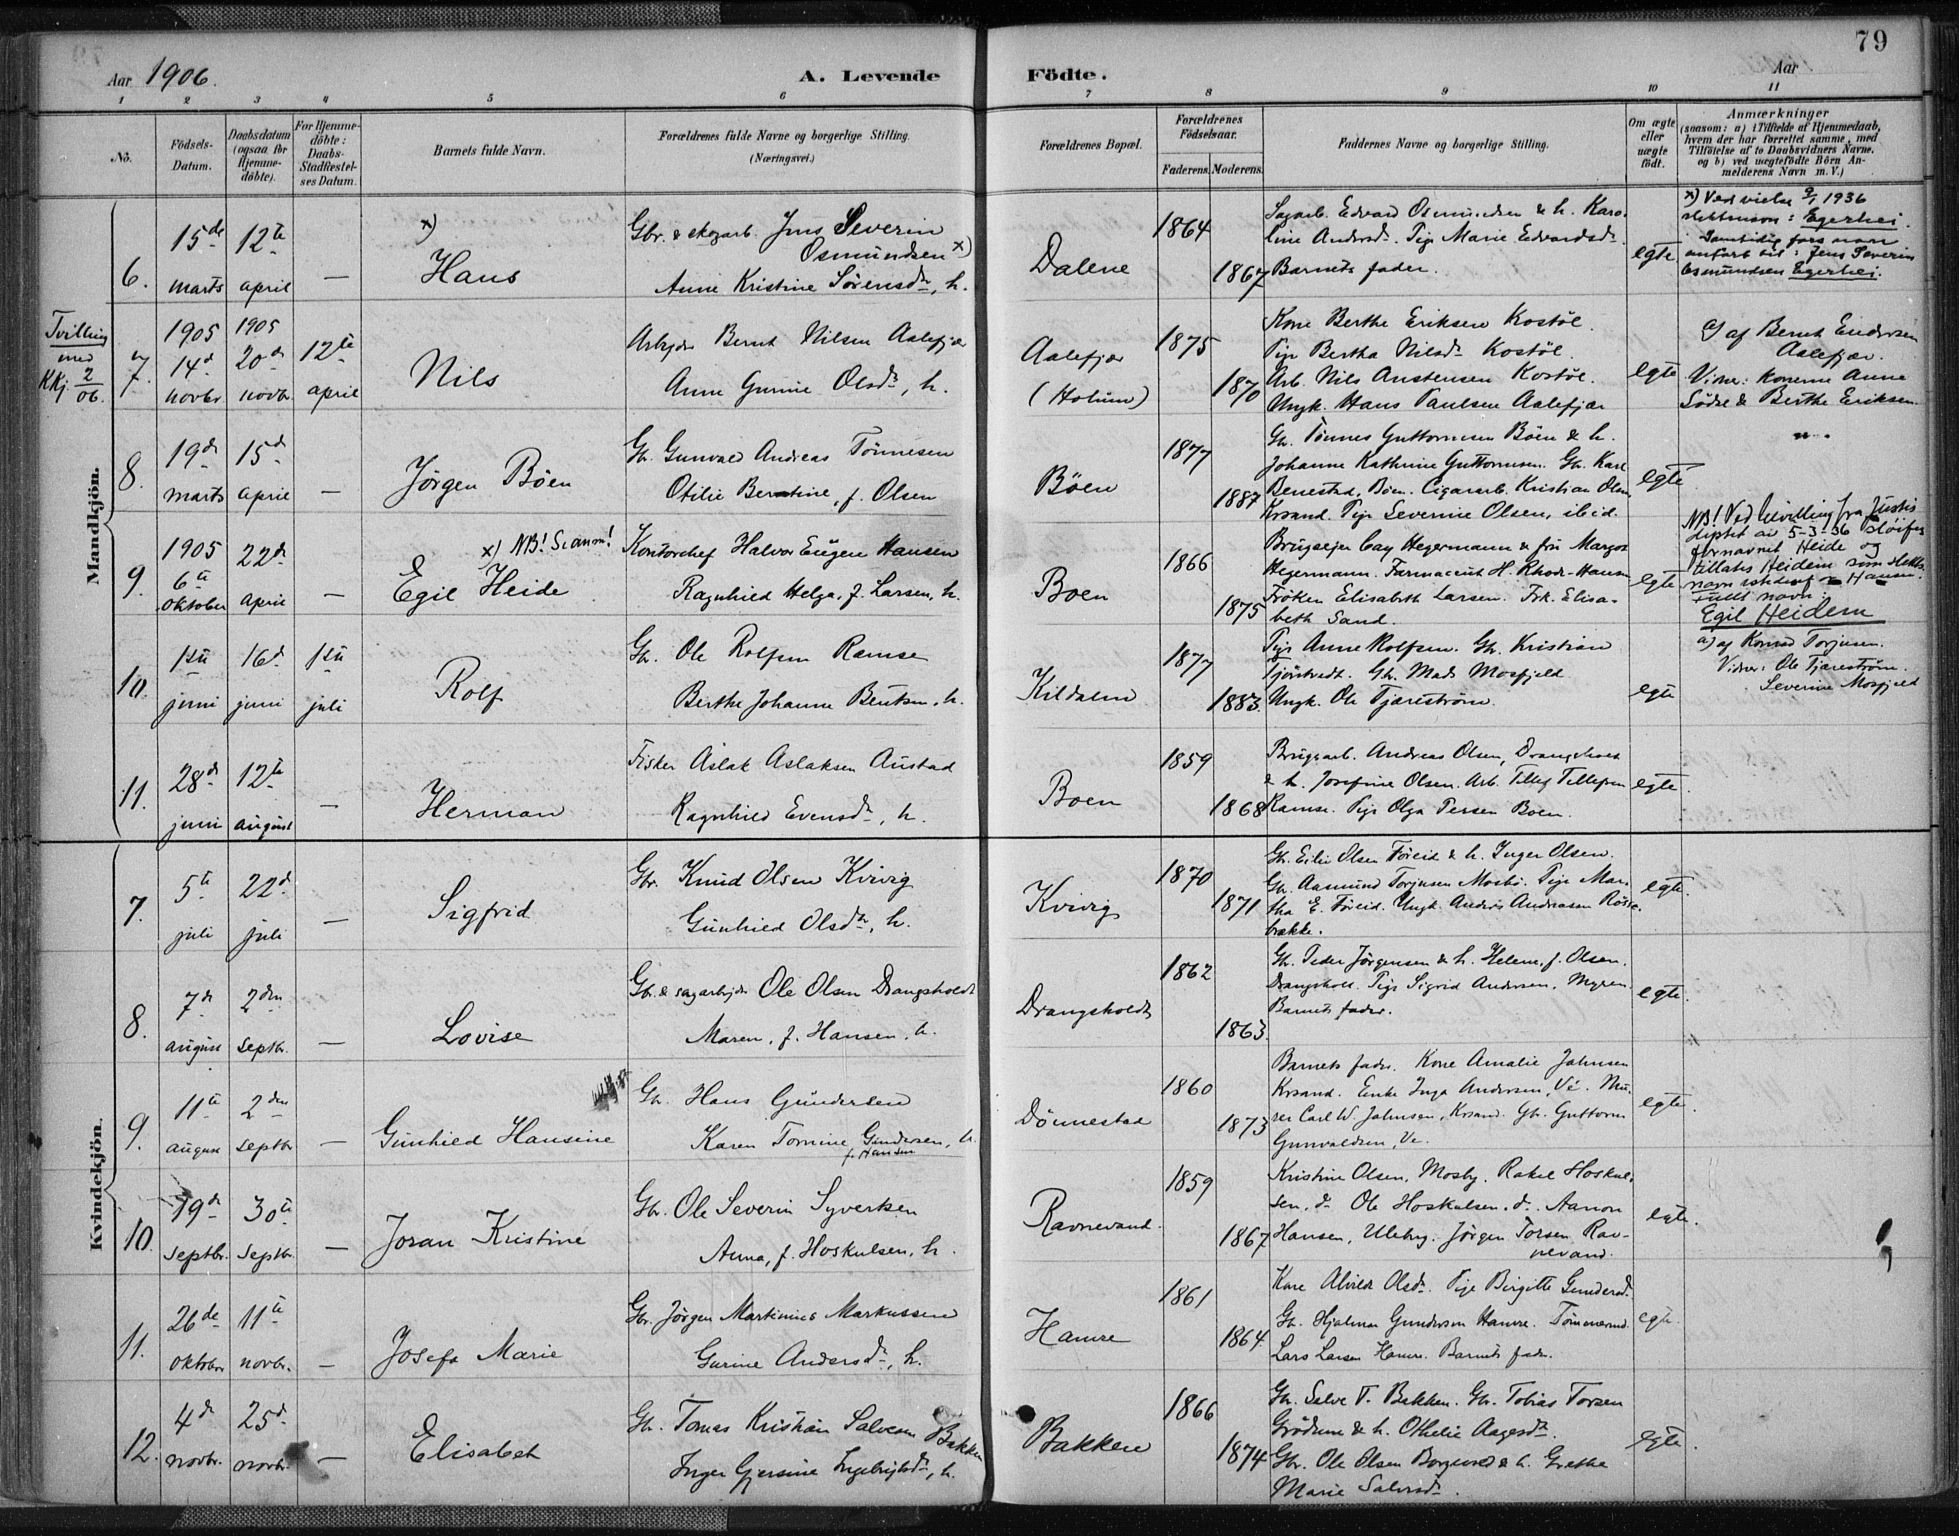 79
Aar 1906.
A. Levende Födte.
Aar
1 2 3 4 5 6 7 8 9 10 11
No.
Födsels-Datum.
Daabsdatum (ogsaa for Hjemme-döbte).
For Hjemme-döbte: Daabs-Stadfæstel-ses Datum.
Barnets fulde Navn.
Forældrenes fulde Navne og borgerlige Stilling.
(Næringsvei.)
Forældrenes Bopæl.
Forældrenes Födselsaar.
Faderens. Moderens.
Faddernes Navne og borgerlige Stilling.
Om ægte eller uægte födt.
Anmærkninger
(saasom: a) i Tilfælde af Hjemmedaab,
hvem der har forrettet samme, med
Tilföielse af to Daabsvidners Navne,
og b) ved uægtefödte Börn An-
melderens Navn m. V.)
Mandkjön.
6. 15de marts 12te april — x) Hans
Gbr. & skogarb. Jens Severin
Osmundsen x)
Anne Kristine Sørensdr, h.
Dalene
1864
1867
Sagarb. Edvard Osmundsen & h. Karo-
line Andersdr. Pige Marie Edvardsdr.
Barnets fader.
egte
x) Ved vielse 9/1 1936
slektsnavn: Egerhei.
Samtidig fars navn
anført til: Jens Severin
Osmundsen Egerhei.
Tvilling
med
KKj. 2/06.
7. 1905 14de novbr 1905 20de novbr. 12te april
Nils
Arbeider Bernt Nilsen Aalefjær
Anne Gunnie Olsdr, h.
Aalefjær
(Holum)
1875
1870
Kone Berthe Eriksen Kostøl.
Pige Bertha Nilsdr Kostøl.
Arb. Nils Austensen Kostøl.
Ungk. Hans Paulsen Aalefjær
egte
a) af Bernt Endresen
Aalefjær.
Vidner: Konerne Anne
Södre & Berthe Eriksen
8. 19de marts 15de april —
Jørgen Böen
Gbr. Gunvald Andreas Tönnesen
Otilie Berntine, f. Olsen
Böen
1877
1887
Gbr. Tönnes Guttormsen Böen & h.
Johanne Kathrine Guttormsen. Gbr. Karl
Benestad, Böen. Cigararb. Kristian Olsen
Krsand. Pige Severine Olsen, ibid.
egte
9. 1905 6te oktober 22de april —
x) NB! Se anm!
Egil Heide
Kontorchef Halvor Eugen Hansen
Ragnhild Helga, f. Larsen, h.
Boen
1866
1875
Brugseier Cay Hegermann & fru Margot
Hegermann. Farmaceut H. Rhode-Hansen
Frøken Elisabeth Larsen. Frk. Elisa-
beth Sand.
egte
NB! Ved bevilling fra Justis
deptet av 5-3-36 sløifes
fornavnet Heide og
tillates Heidem som slekts-
navn istedenfor Hansen.
Fullt navn:
Egil Heidem
10. 1ste juni 16de juni 1ste juli
Rolf
Gbr. Ole Rolfsen Ramse
Berthe Johanne Bentsen, h.
Kildalen
1877
1883.
Pige Anne Rolfsen. Gbr. Kristian
Gbr. Mads Mosfjeld
Ungk. Ole Tjæreström.
egte
a) af Konrad Torjusen.
Vidner: Ole Tjæreström.
Severine Mosfjeld
11. 28de juni 12te august —
Herman
Fisker Aslak Aslaksen Austad
Ragnhild Evensdr, h.
Boen
1859
1868
Brugsarb. Andreas Olsen, Drangsholt
& h. Josefine Olsen. Arb. Tellef Tellefsen
Ramse. Pige Olga Persen Boen.
egte.
Kvindekjön.
7. 5te juli 22de juli —
Sigfrid
Gbr. Knud Olsen Kvivig
Gunhild Olsdr, h.
Kvivig
1870
1871
Gbr. Eilif Olsen Föreid & h. Inger Olsen.
Gbr. Aasmund Torjusen Mosbö. Pige Mar-
tha E. Föreid. Ungk. Andrös Andreasen Rösse-
brække.
egte.
8. 7de august 2den septbr. —
Lovise
Gbr. & sagarbeider Ole Olsen Drangsholdt
Maren, f. Hansen, h.
Drangsholdt
1862
1863.
Gbr. Peder Jørgensen & h. Helene, f. Olsen.
Drangsholt. Pige Sigrid Andersen, Myren.
Barnets fader.
egte.
9. 11te august 2den septbr —
Gunhild Hansine
Gbr. Hans Gundersen
Karen Tomine Gundersen, h.
f. Hansen
Dönnestad
1860
1873
Barnets fader. Kone Amalie Jahnsen
Krsand. Enke Inga Andersen, Ve. Mu-
rer Carl W. Jahnsen, Krsand. Gbr. Guttorm
Gunvaldsen, Ve.
egte.
10. 19de septbr. 30te septbr. —
Joran Kristine
Gbr. Ole Severin Syvertsen
Anna, f. Hoskulsen, h.
Ravnevand.
1859
1867
Kristine Olsen, Mosby. Rakel Hoskul-
sen, do. Ole Hoskulsen, do. Aanon
Hansen, Uleberg. Jørgen Torsen Rav-
nevand.
egte.
11. 26de oktober 11te novbr. —
Josefa Marie
Gbr. Jørgen Martinius Markussen
Gurine Andersdr, h.
Hamre
1861
1864.
Kone Alvilde Olsdr. Pige Birgitte Gundersdr.
Gbr. Hjalmar Gundersen Hamre. Tömmermd.
Lars Larsen Hamre. Barnets fader.
egte.
12. 4de novbr. 25de novbr. —
Elisabet
Gbr. Tomas Kristian Salvesen Bakken
Inger Gjersine Ingebrigtsdr, h.
Bakken
1866
1874
Gbr. Salve T. Bakken. Gbr. Tobias Torsen
Grödum & h. Othelie Aagesdr.
Gbr. Ole Olsen Borgwold & h. Grethe
Marie Salvesdr.
egte.